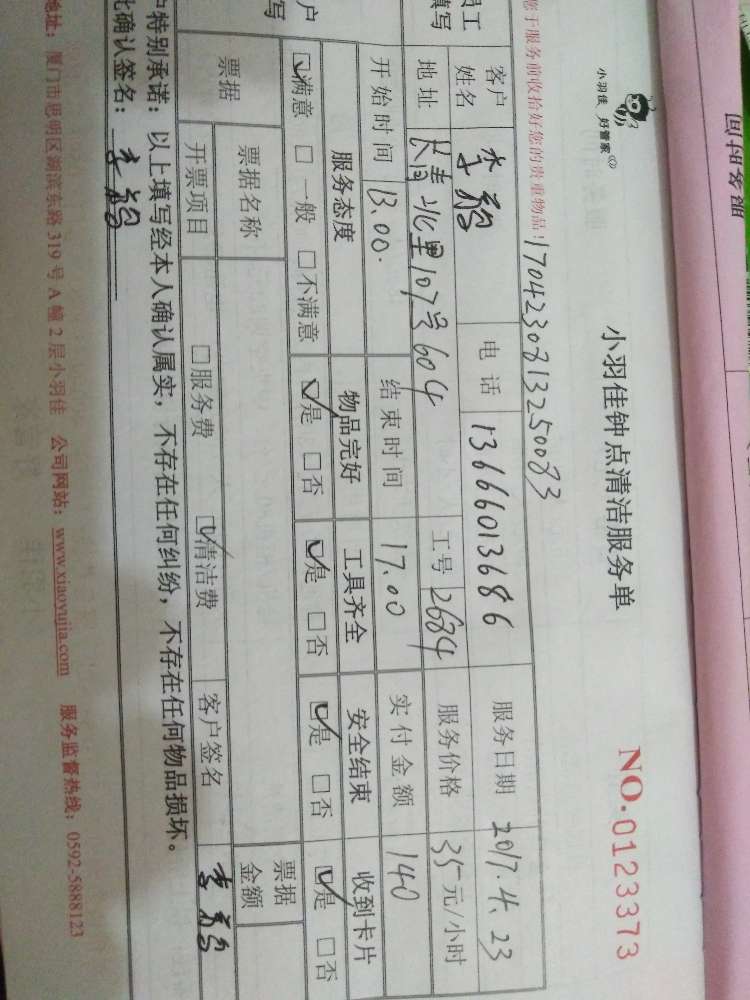 服务日日
小羽佳 好管家
小羽佳钟点清洁服务单
NO.0123373
您于服务前收拾好您的贵重物品！
1704230813250083
员工
填写
客户
姓名
李
电话
13666013686
服务日期
2017.4.23
地址
长青北里107号604
工号
2684
服务价格
35元/小时
开始时间
13.00.
结束时间
17.00
实付金额
140
户
写
服务态度
物品完好
工具齐全
安全结束
收到卡片
☑满意 □一般 □不满意
☑是 □否
☑是 □否
☑是 □否
☑是 □否
票据
票据名称
票据
金额
开票项目
□服务费
☑清洁费
客户签名
李
户特别承诺：以上填写经本人确认属实，不存在任何纠纷，不存在任何物品损坏。
此确认签名：李
地址：厦门市思明区湖滨东路319号A幢2层小羽佳 公司网站：www.xiaoyujia.com 服务监督热线：0592-5888123